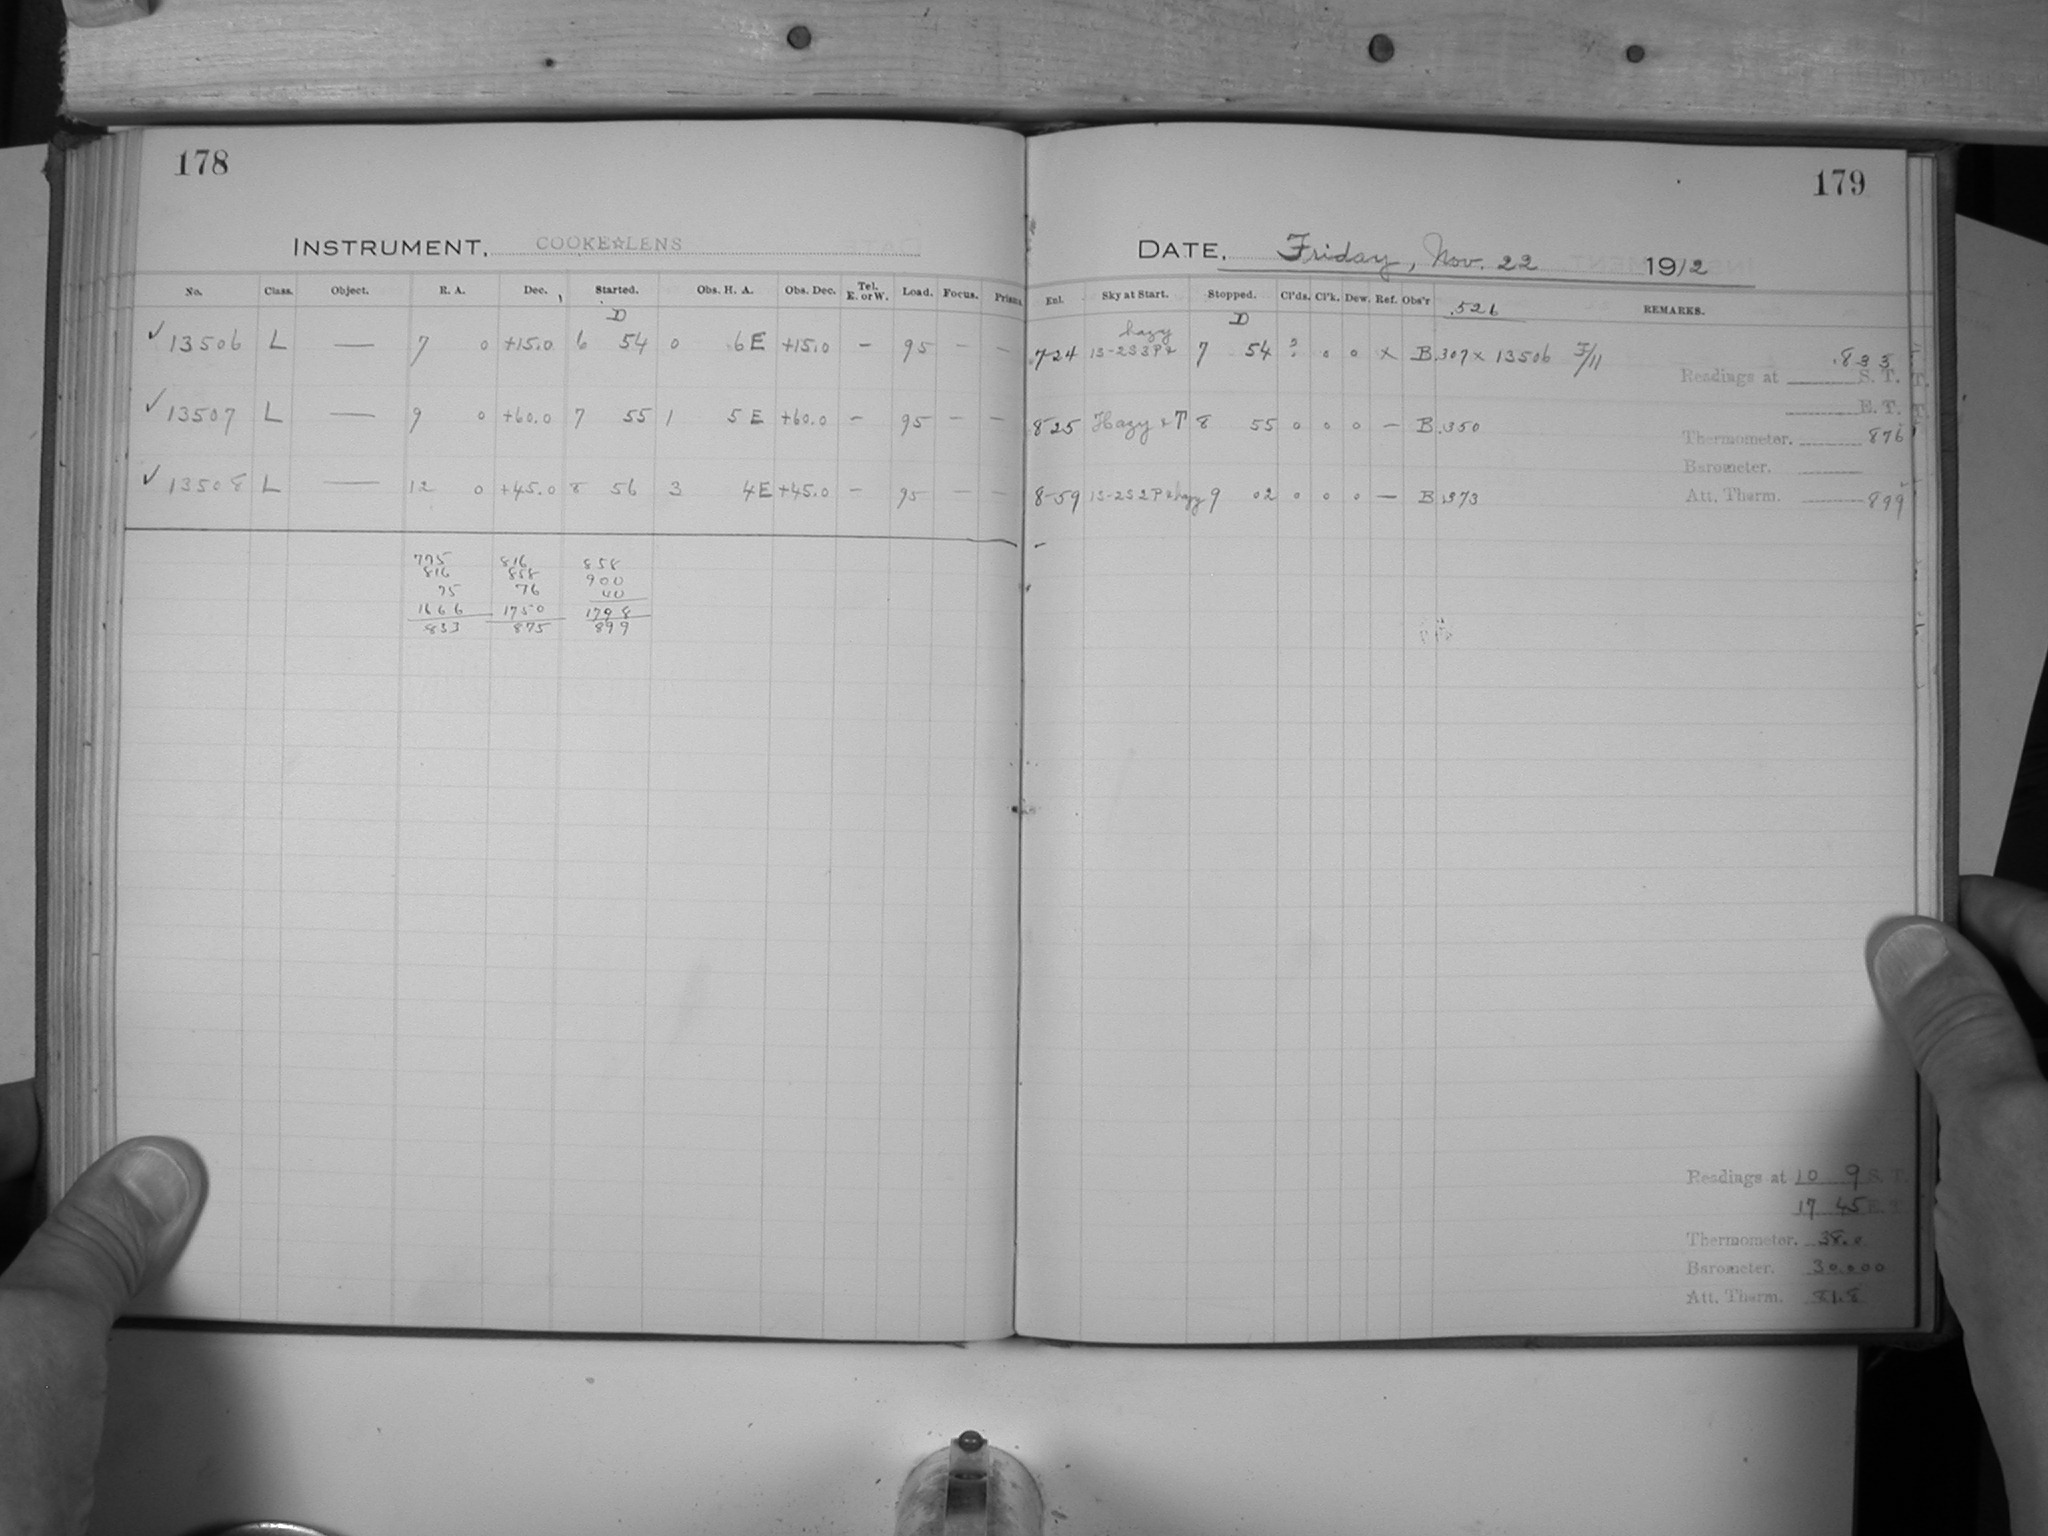 178
INSTRUMENT, COOKE☆LENS
No. Class. Object. R. A. Dec. Started. Obs. H. A. Obs. Dec. Tel. E. or W. Load. Focus. Prisms
D
✓ 13506 L — 7 0 +15.0 6 54 0 6E +15.0 — 95 — —
✓ 13507 L — 9 0 +60.0 7 55 1 5E +60.0 — 95 — —
✓ 13508 L — 12 0 +45.0 8 56 3 4E +45.0 — 95 — —
775 816 858
816 858 900
75 76 40
1666 1750 1798
833 875 899
179
DATE, Friday, Nov. 22 1912
Enl. Sky at Start. Stopped. Cl'ds. Cl'k. Dew. Ref. Obs'r .526 REMARKS.
hazy D
7-24 1S-2S3P+ 7 54 ? 0 0 x B .307 x 13506 F/11 .833
Readings at S. T.
E. T.
8 25 Hazy + T 8 55 0 0 0 — B .350
Thermometer. 876
Barometer.
8-59 1S-2S2P+hazy 9 02 0 0 0 — B .373
Att. Therm. 899
Readings at 10 9 S. T.
17 45 E. T.
Thermometer. 38.0
Barometer. 30.000
Att. Therm.